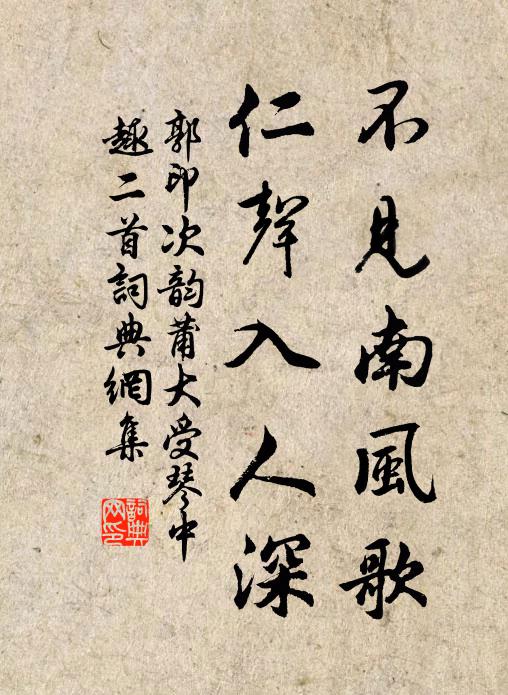 不見南風歌
仁聲入人深
郭印次韵蒲大受琴中
趣二首詞典網集
詞典
网印